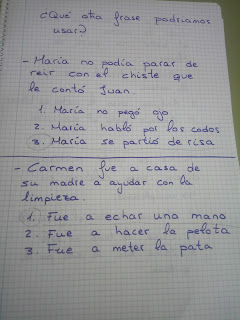 ¿Qué otra frase podríamos
usar?
- María no podía parar de
reir con el chiste que
le contó Juan
1. María no pegó ojo
2. María habló por los codos
3. María se partió de risa
- Carmen fue a casa de
su madre a ayudar con la
limpieza.
1. Fue a echar una mano
2. Fue a hacer la pelota
3. Fue a meter la pata